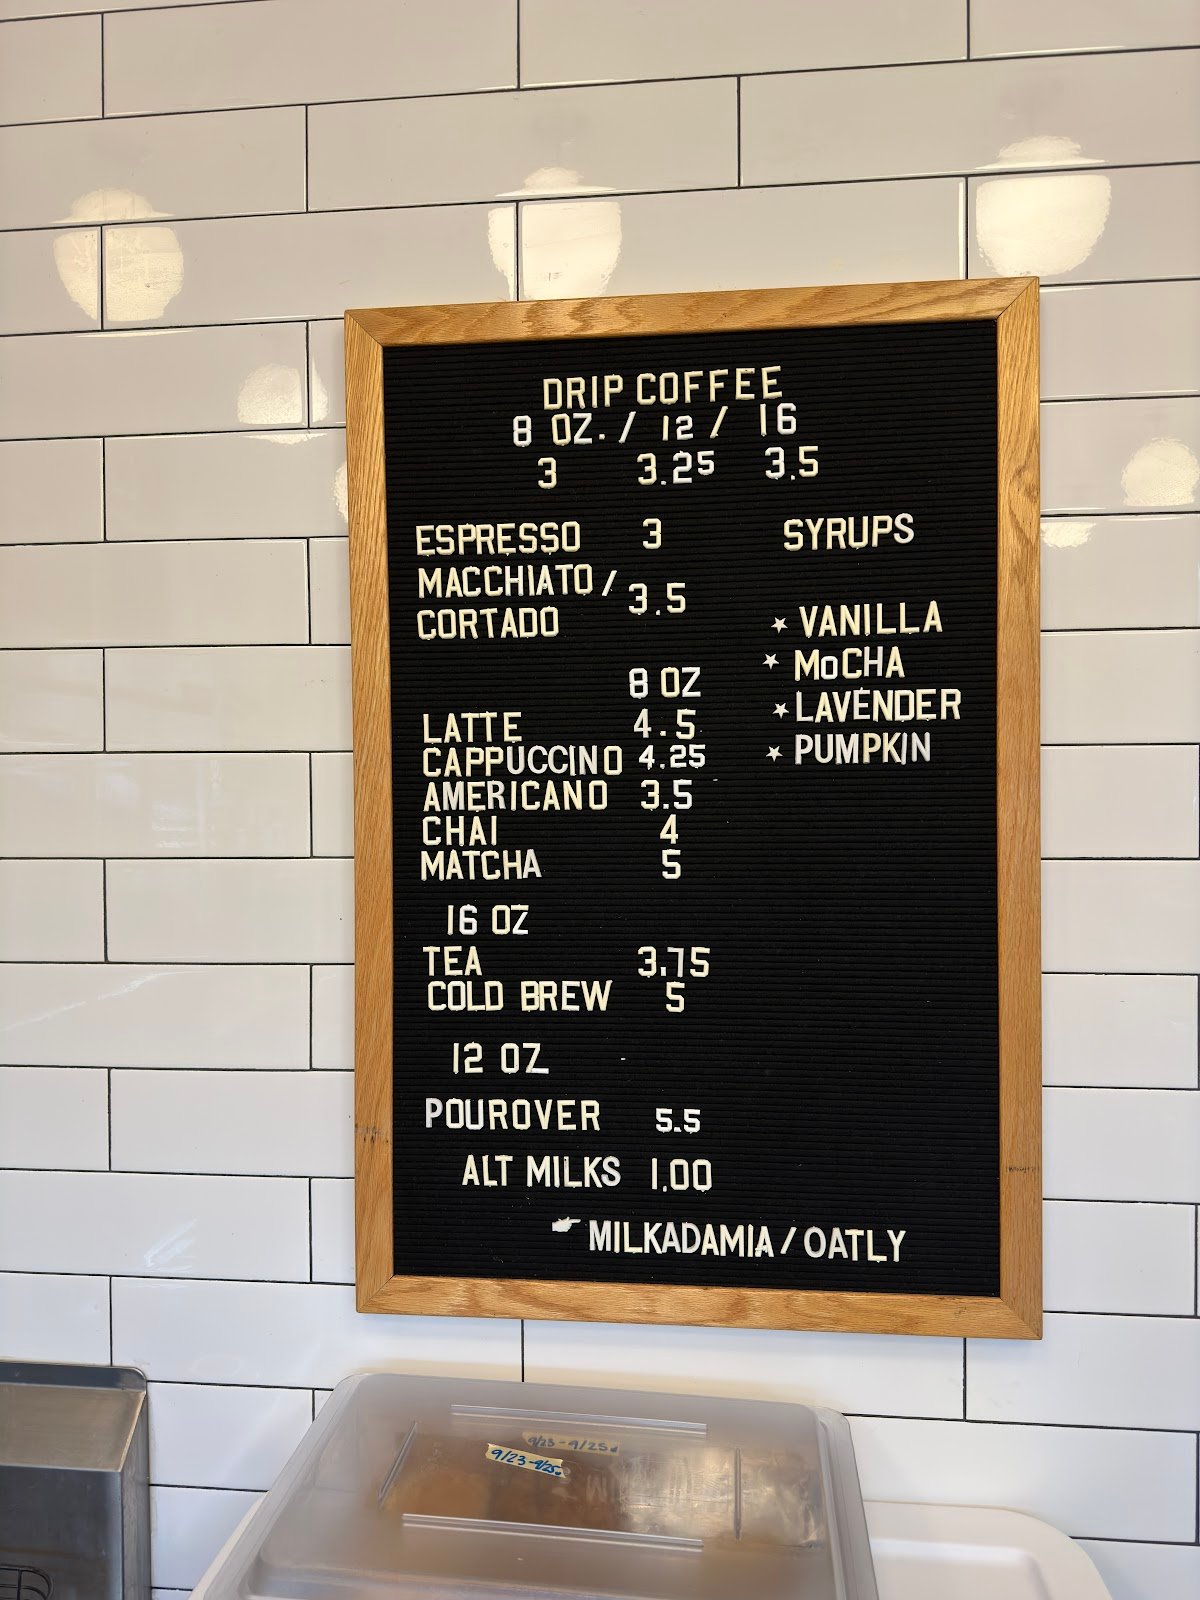 DRIP COFFEE
8 OZ. / 12 / 16
3 3.25 3.5
ESPRESSO 3
MACCHIATO / CORTADO 3.5
8 OZ
LATTE 4.5
CAPPUCCINO 4.25
AMERICANO 3.5
CHAI 4
MATCHA 5
16 OZ
TEA 3.75
COLD BREW 5
12 OZ
POUROVER 5.5
ALT MILKS 1.00
MILKADAMIA / OATLY
SYRUPS
VANILLA
MoCHA
LAVENDER
PUMPKIN
9/23-9/25